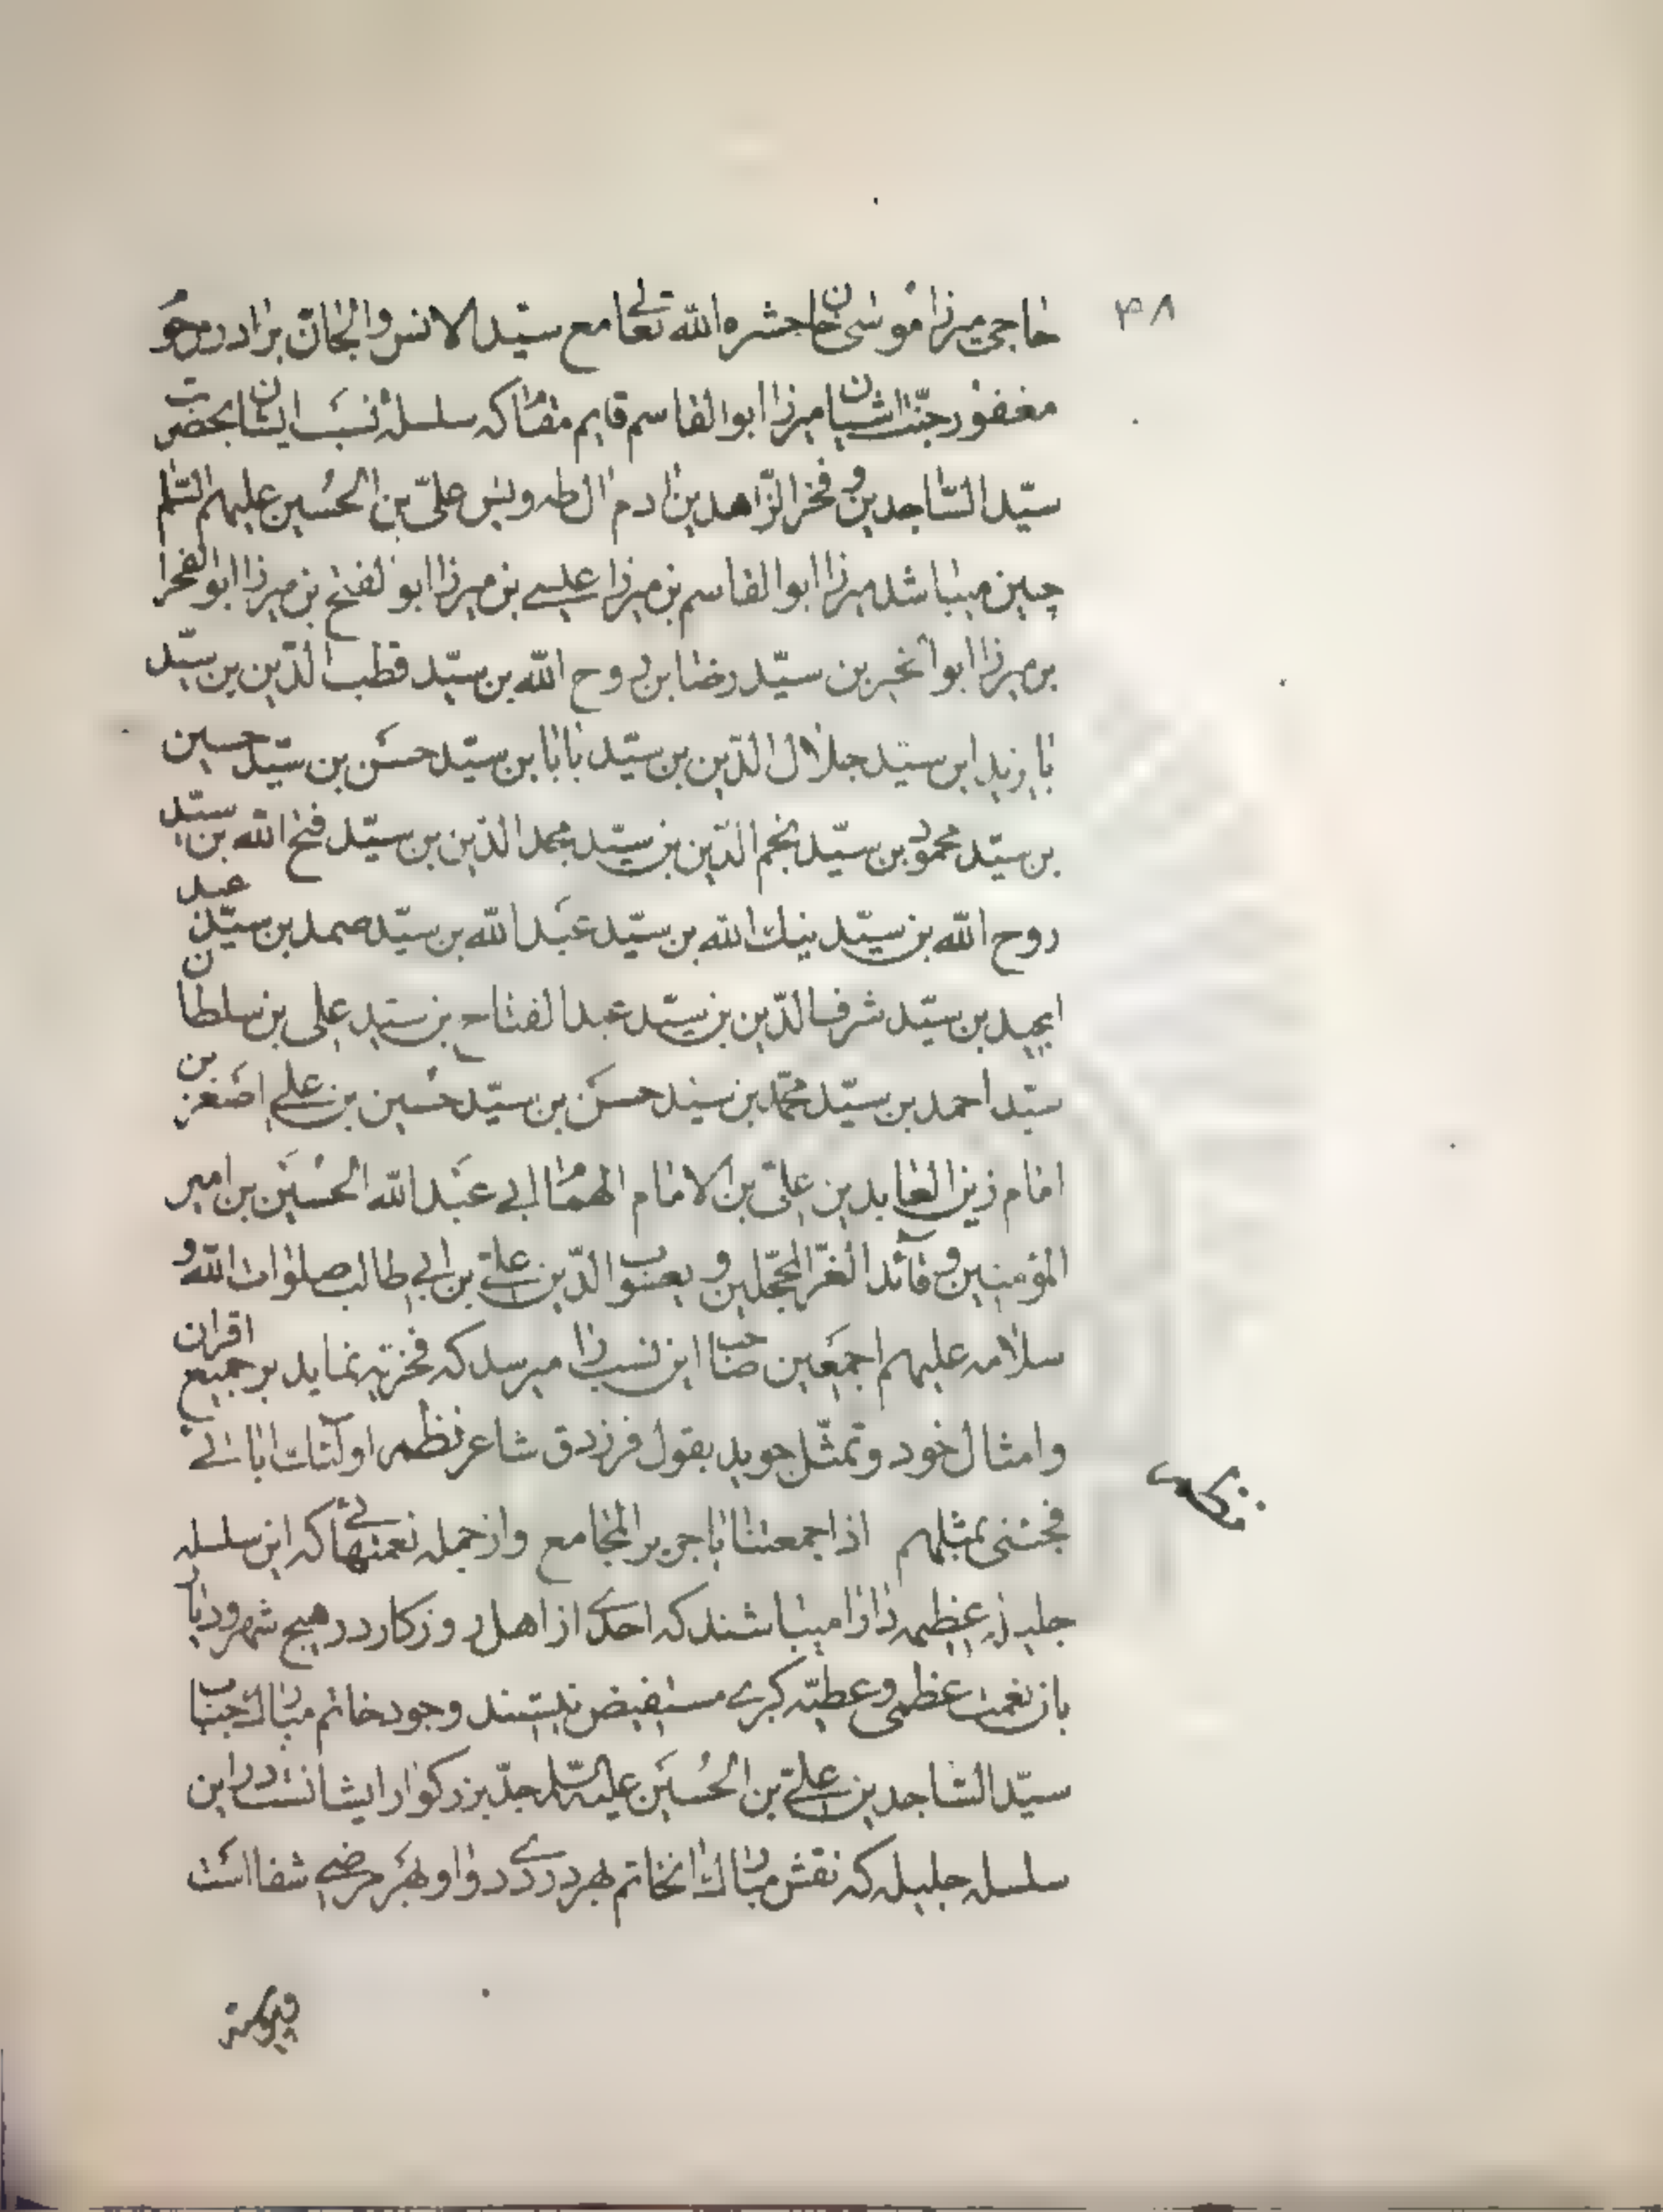 ۴۸
حاجی میرزا موسی خان حشره الله تعالی مع سید الانس والجان برادر مرحو
مغفور جنت اشیان میرزا ابوالقاسم قایم مقام که سلسله نسب ایشان بحضرت
سید الساجدین و فخر الزاهدین ادم ال طه و یس علی بن الحسین علیهم السلم
چنین میباشد میرزا ابوالقاسم بن میرزا عیسی بن میرزا ابوالفتح بن میرزا ابوالفخرا
بن میرزا ابوالخیر بن سید رضا بن روح الله بن سید قطب الدین بن سید
بایزید ابن سید جلال الدین بن سید بابا بن سید حسن بن سید حسین
بن سید محمود بن سید نجم الدین بن سید مجد الدین بن سید فتح الله بن سید
روح الله بن سید نیك الله بن سید عبد الله بن سید صمد بن سید عبد
المجید بن سید شرف الدین بن سید عبد الفتاح بن سید علی بن سلطان
سید احمد بن سید محمد بن سید حسن بن سید حسین بن علی اصغر بن
امام زین العابدین علی بن الامام الهمام ابی عبد الله الحسین بن امیر
المؤمنین و قائد الغر المحجلین و یعسوب الدین علی بن ابی طالب صلوات الله و
سلامه علیهم اجمعین صاحب این نسب را میرسد که فخریه نماید بر جمیع اقران
وامثال خود و تمثل جوید بقول فرزدق شاعر نظم اولئك ابائی
فجئنی بمثلهم اذا جمعتنا یا جریر المجامع واز جمله نعمتهائی که این سلسله
جلیله عظیمه دارا میباشند که احدی از اهل روزکار در هیچ شهر و دیار
بان نعمت عظمی و عطیه کبری مستفیض نیستند وجود خاتم مبارك جناب
سید الساجدین علی بن الحسین علیه السلم جد بزرکوار ایشانست در این
سلسله جلیله که نقش مبارك انخاتم بهر دردی دوا و بهر مرضی شفا است